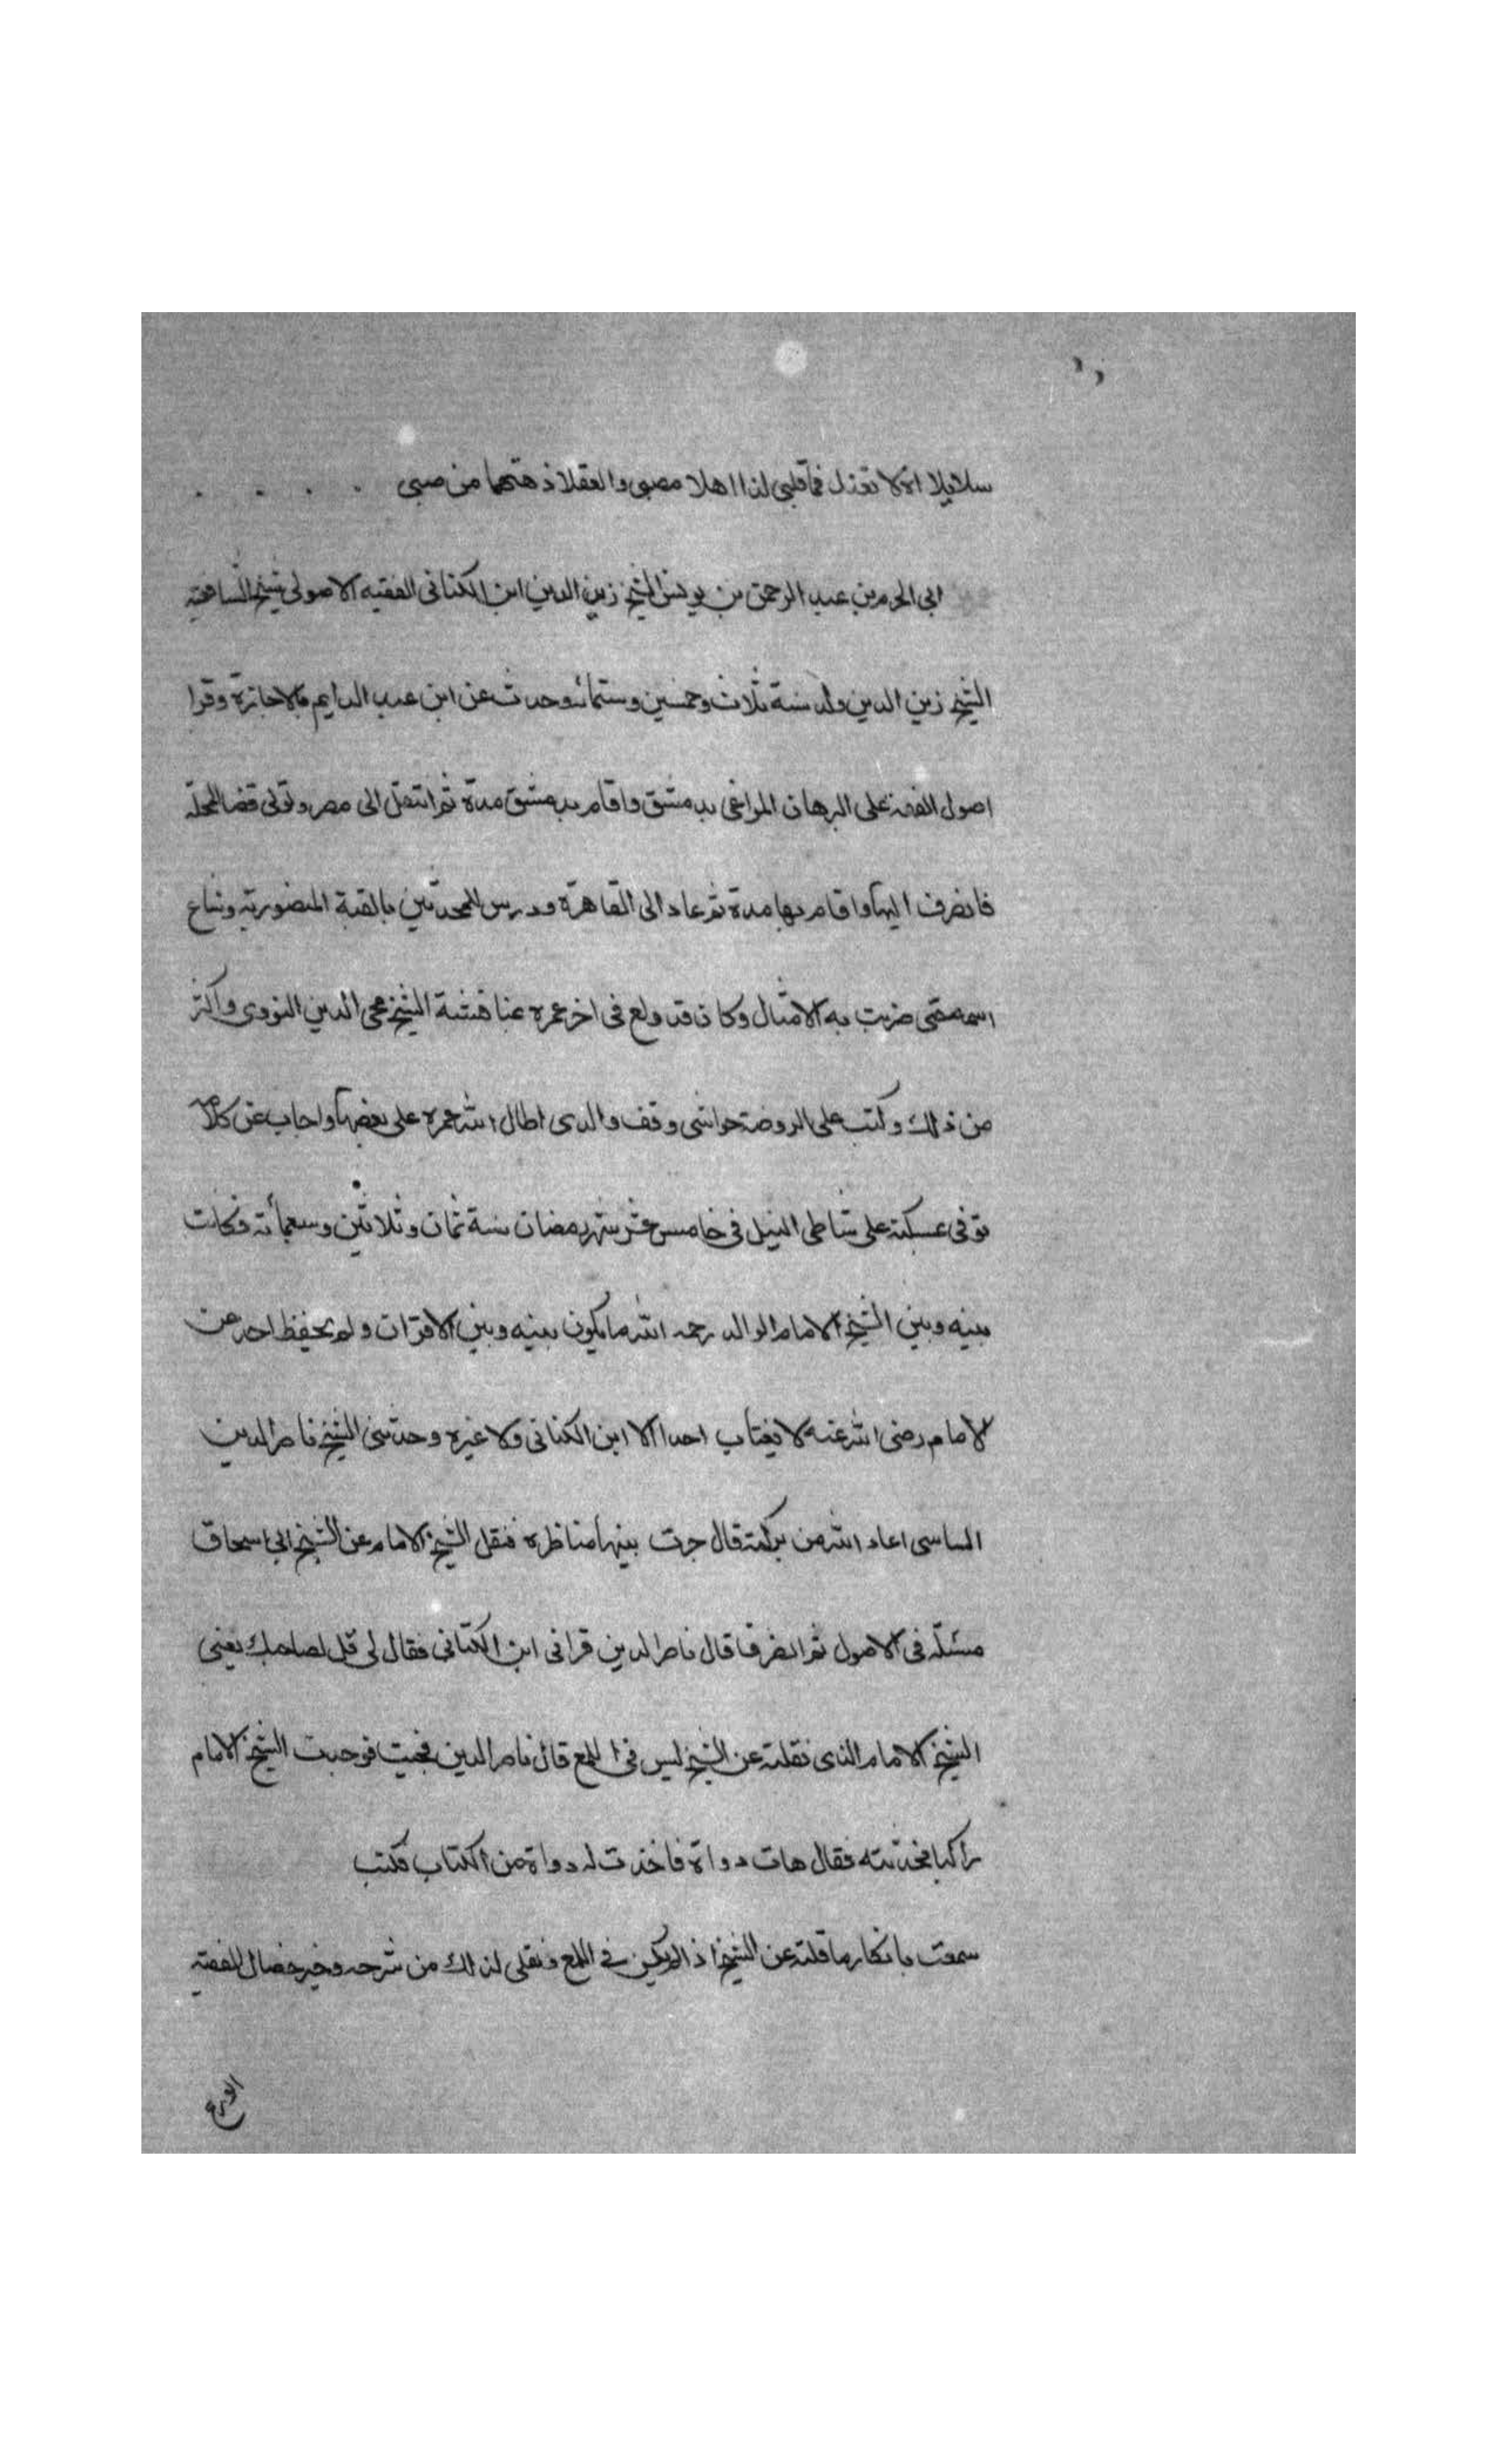 سلا بلا الا لا تعذل فما قلبى لذا اهلا مصبى والعقلا ذهتما من صبى
ابى الحرم بن عبد الرحمن بن يونس الشيخ زين الدين ابن الكنانى الفقيه الاصولى شيخ الشافعية
الشيخ زين الدين ولد سنة ثلاث وخمسين وستمائة وحدث عن ابن عبد الدايم بالاجازة وقرا
اصول الفقه على البرهان المراغى بدمشق واقام بدمشق مدة ثم انتقل الى مصر وتولى قضا المحلة
فانصرف اليها واقام بها مدة ثم عاد الى القاهرة ودرس للمحدثين بالقبة المنصورية وشاع
اسمه حتى ضربت به الامثال وكان قد ولع فى اخر عمره بمناقشة الشيخ محى الدين النووى واكثر
من ذلك وكتب على الروضة حواشى وقف والدى اطال الله عمره على بعضها واجاب عن كلامه
توفى بمسكنه على شاطى النيل فى خامس عشر شهر رمضان سنة ثمان وثلاثين وسبعمأئة وكانت
بينه وبين الشيخ الامام الوالد رحمه الله ما يكون بينه وبين الاقران ولم يحفظ احد من
الامام رضى الله عنه لا يغتاب احدا الا ابن الكنانى ولا غيره وحدثنى الشيخ ناصر الدين
اعاد الله من بركته قال جرت بينهما مناظرة فنقل الشيخ الامام عن الشيخ ابى اسحاق
مسئلة فى الاصول ثم انصرفا قال ناصر الدين فرانى ابن الكنانى فقال لى قل لصاحبك يعنى
الشيخ الامام الذى نقلته عن الشيخ ليس فى اللمع قال ناصر الدين فجيت فوجدت الشيخ الامام
راكبا فحدثته فقال هات دواة فاخذت له دواة من الكتاب فكتب
سمعت بانكار ما قلته عن الشيخ اذ لم يكن فى اللمع ونقلى لذلك من شرحه وخير خصال الفقيه
الورع